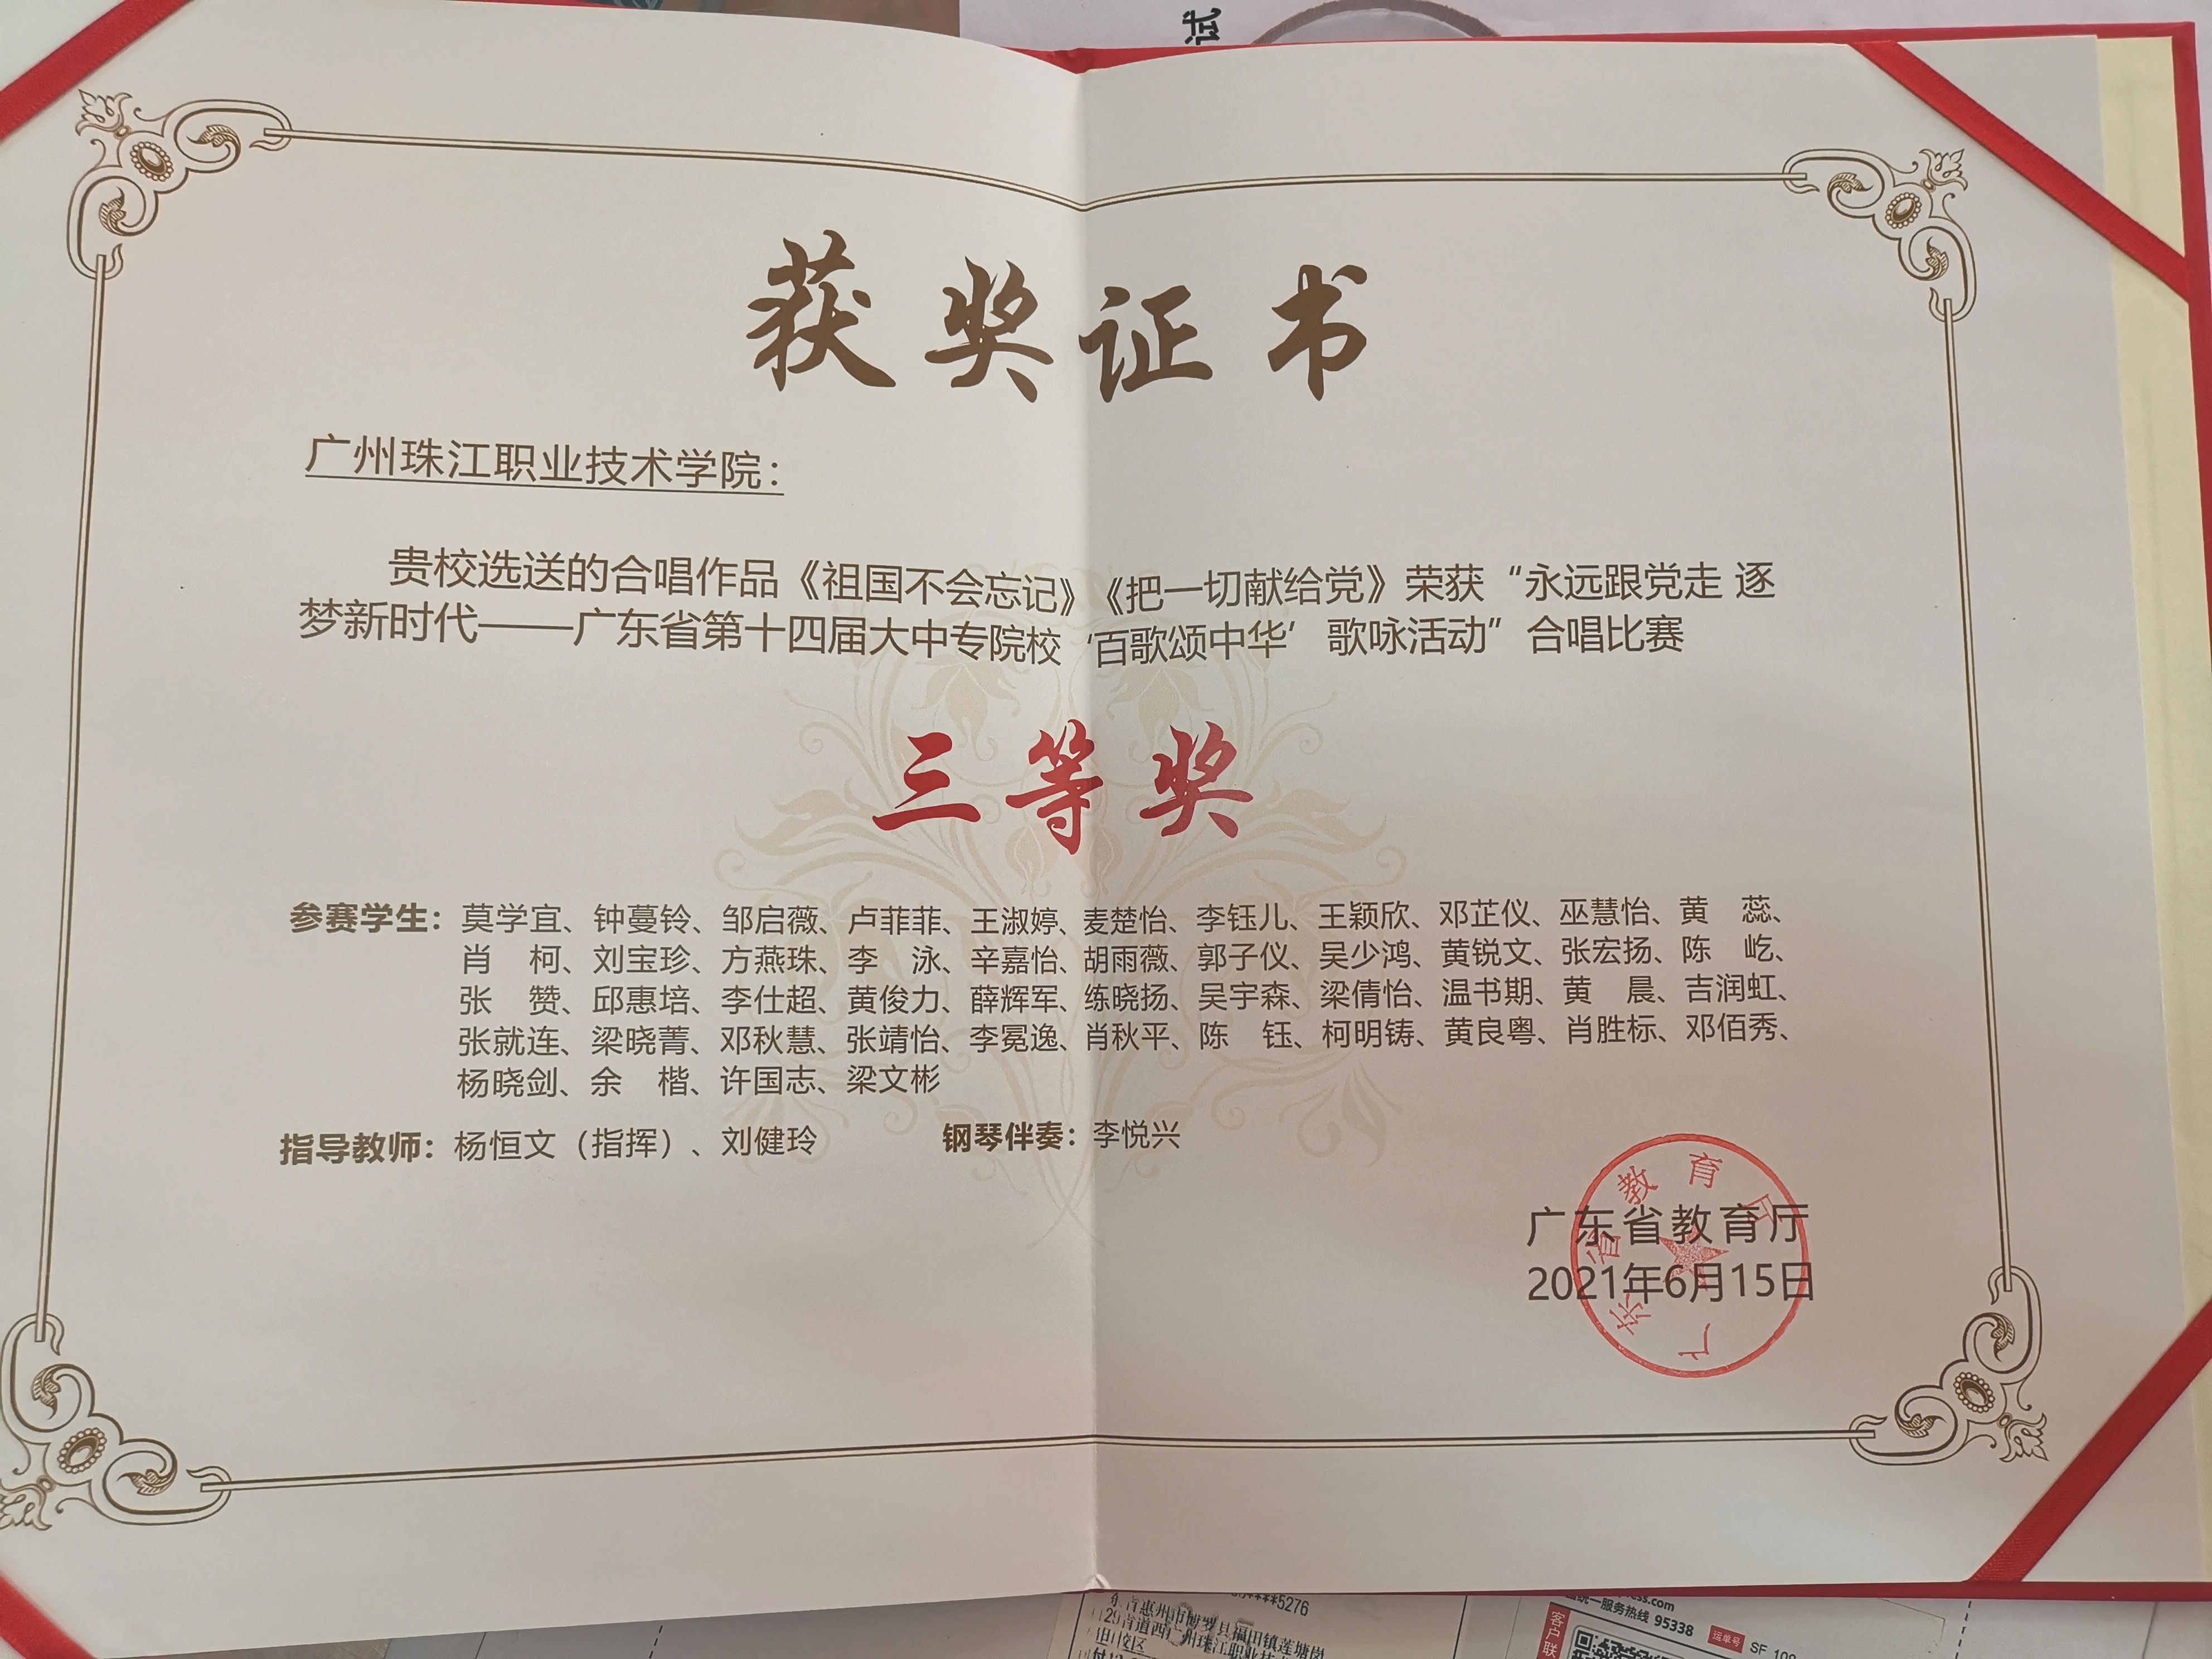 试
获奖证书
广州珠江职业技术学院：
贵校选送的合唱作品《祖国不会忘记》《把一切献给党》荣获“永远跟党走 逐
梦新时代——广东省第十四届大中专院校‘百歌颂中华’歌咏活动”合唱比赛
三等奖
参赛学生：莫学宜、钟蔓铃、邹启薇、卢菲菲、王淑婷、麦楚怡、李钰儿、王颖欣、邓芷仪、巫慧怡、黄　蕊、
肖　柯、刘宝珍、方燕珠、李　泳、辛嘉怡、胡雨薇、郭子仪、吴少鸿、黄锐文、张宏扬、陈　屹、
张　赞、邱惠培、李仕超、黄俊力、薛辉军、练晓扬、吴宇森、梁倩怡、温书期、黄　晨、吉润虹、
张就连、梁晓菁、邓秋慧、张靖怡、李冕逸、肖秋平、陈　钰、柯明铸、黄良粤、肖胜标、邓佰秀、
杨晓剑、余　楷、许国志、梁文彬
指导教师：杨恒文（指挥）、刘健玲　钢琴伴奏：李悦兴
广东省教育厅
2021年6月15日
广东省教育厅
****5276
惠州市博罗县福田镇莲塘岗
州珠江职业技
统一服务热线 95338
客户联
运单号 SF